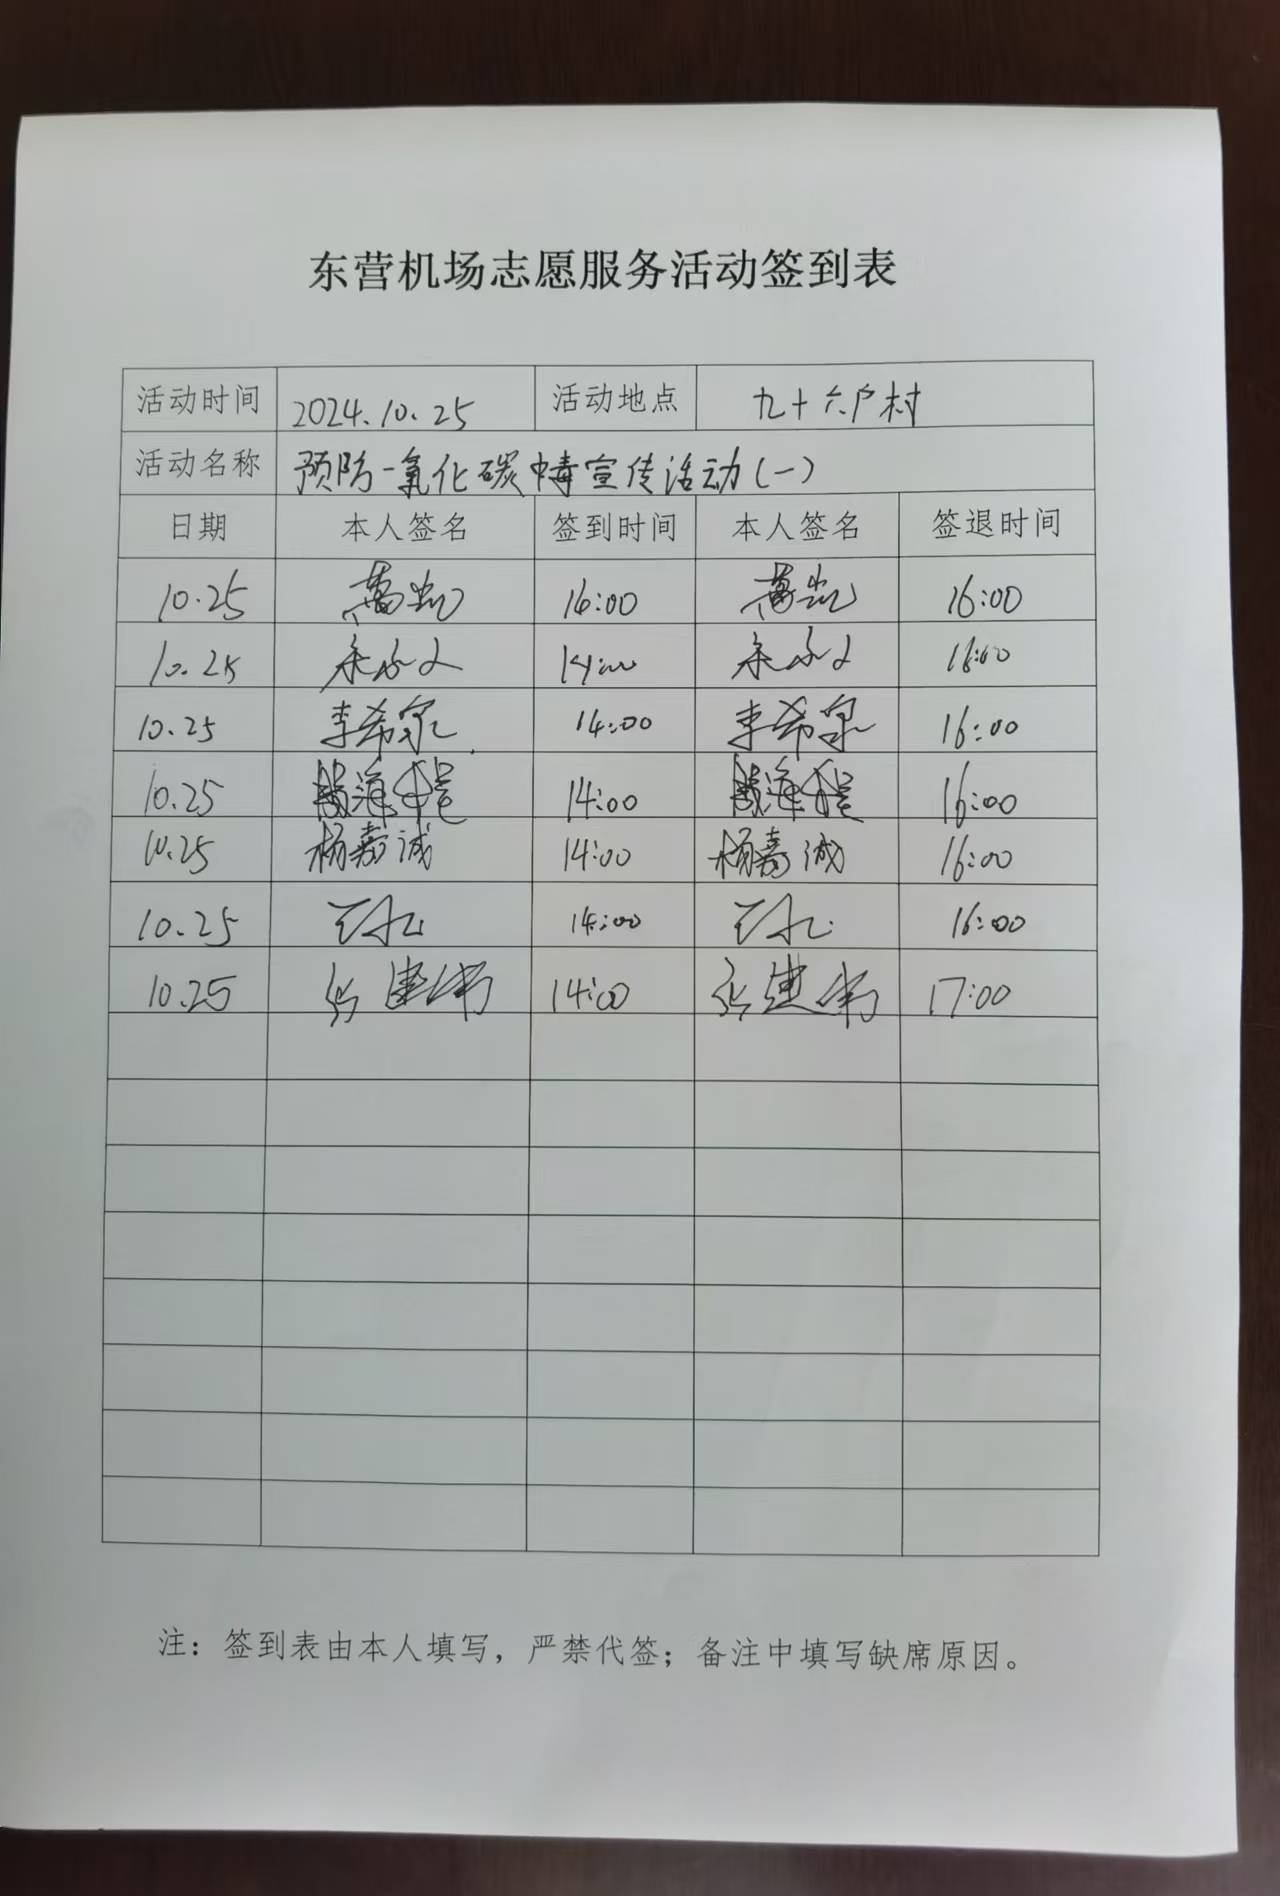 东营机场志愿服务活动签到表
活动时间 2024.10.25 活动地点 九十六户村
活动名称 预防一氧化碳中毒宣传活动(一)
日期 本人签名 签到时间 本人签名 签退时间
10.25 16:00 16:00
10.25 14:00 16:00
10.25 李希泉 14:00 李希泉 16:00
10.25 14:00 16:00
10.25 杨嘉诚 14:00 杨嘉诚 16:00
10.25 14:00 16:00
10.25 张建伟 14:00 张建伟 17:00
注：签到表由本人填写，严禁代签；备注中填写缺席原因。